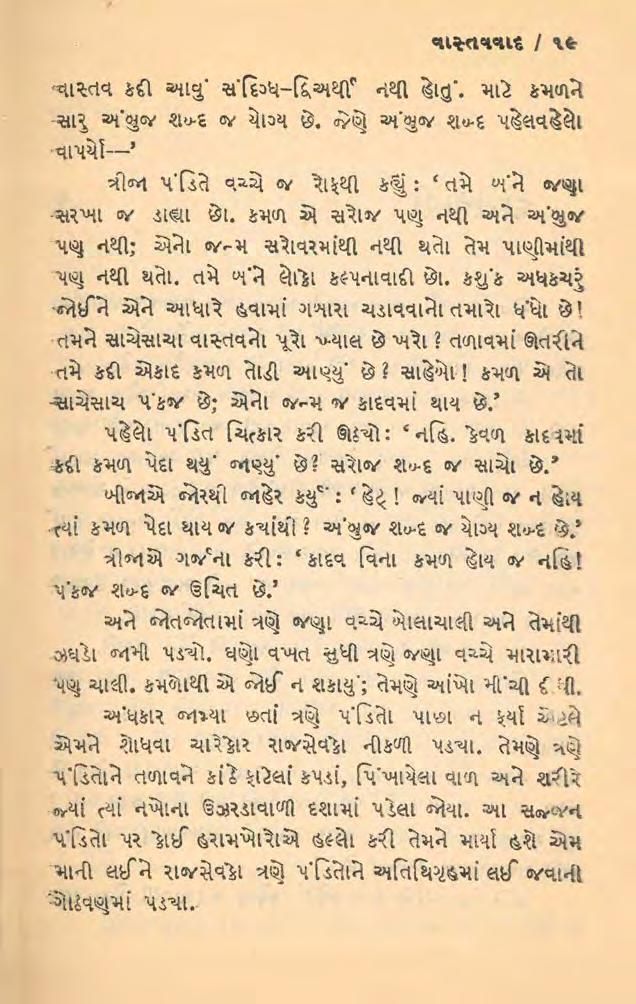 વાસ્તવવાદ / ૧૯
વાસ્તવ કદી આવું સંદિગ્ધ-દ્વિઅર્થી નથી હોતું. માટે કમળને
સારુ અંબુજ શબ્દ જ યોગ્ય છે. જેણે અંબુજ શબ્દ પહેલવહેલો
વાપર્યો—’
ત્રીજા પંડિતે વચ્ચે જ રોફથી કહ્યું : ‘ તમે બંને જણા
સરખા જ ડાહ્યા છો. કમળ એ સરોજ પણ નથી અને અંબુજ
પણ નથી; એનો જન્મ સરોવરમાંથી નથી થતો તેમ પાણીમાંથી
પણ નથી થતો. તમે બંને લોકો કલ્પનાવાદી છો. કશુંક અધકચરું
જોઈને એને આધારે હવામાં ગબારા ચડાવવાનો તમારો ધંધો છે !
તમને સાચેસાચા વાસ્તવનો પૂરો ખ્યાલ છે ખરો ? તળાવમાં ઊતરીને
તમે કદી એકાદ કમળ તોડી આણ્યું છે ? સાહેબો ! કમળ એ તો
સાચેસાચ પંકજ છે; એનો જન્મ જ કાદવમાં થાય છે.’
પહેલો પંડિત ચિત્કાર કરી ઊઠયો : ‘ નહિ. કેવળ કાદવમાં
કદી કમળ પેદા થયું જાણ્યું છે ? સરોજ શબ્દ જ સાચો છે.’
બીજાએ જોરથી જાહેર કર્યું : ‘ હેટ્ ! જ્યાં પાણી જ ન હોય
ત્યાં કમળ પેદા થાય જ કયાંથી ? અંબુજ શબ્દ જ યોગ્ય શબ્દ છે.’
ત્રીજાએ ગર્જના કરી : ‘ કાદવ વિના કમળ હોય જ નહિ !
પંકજ શબ્દ જ ઉચિત છે.’
અને જોતજોતામાં ત્રણે જણા વચ્ચે બોલાચાલી અને તેમાંથી
ઝઘડો જામી પડયો. ઘણો વખત સુધી ત્રણે જણા વચ્ચે મારામારી
પણ ચાલી. કમળોથી એ જોઈ ન શકાયું; તેમણે આંખો મીંચી દીધી.
અંધકાર જામ્યા છતાં ત્રણે પંડિતો પાછા ન ફર્યા એટલે
એમને શોધવા ચારેકોર રાજસેવકો નીકળી પડયા. તેમણે ત્રણે
પંડિતોને તળાવને કાંઠે ફાટેલાં કપડાં, પિંખાયેલા વાળ અને શરીરે
જ્યાં ત્યાં નખોના ઉઝરડાવાળી દશામાં પડેલા જોયા. આ સજ્જન
પંડિતો પર કોઈ હરામખોરોએ હલ્લો કરી તેમને માર્યા હશે એમ
માની લઈને રાજસેવકો ત્રણે પંડિતોને અતિથિગૃહમાં લઈ જવાની
ગોઠવણમાં પડયા.